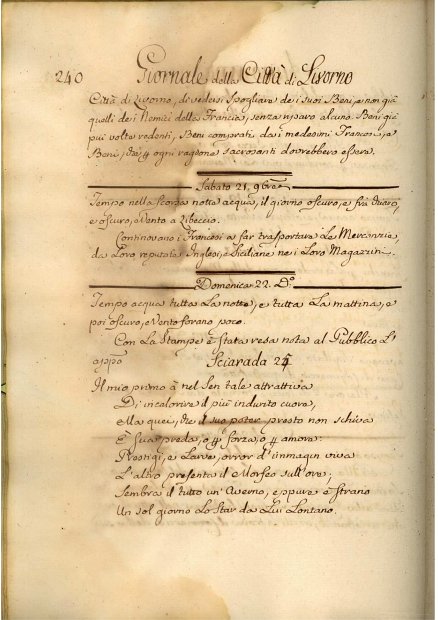 240 Giornale della Città di Livorno
Città di Livorno, di vedersi spogliare de i suoi Beni, e non già
quelli de i Nemici della Francia, senza riparo alcuno. Beni già
più volte redenti, Beni comprati da i medesimi Francesi, e
Beni, che ogni ragione sacrosanti dovrebbero essere.
Sabato 21. 9bre
Tempo nella scorsa notte acqua, il giorno oscuro, e
e oscuro, e Vento a Libeccio.
Continovano i Francesi a far trasportare Le Mercanzie,
da Loro reputate Inglesi, e Siciliane nei Loro Magazzini.
Domenica 22. Do.
Tempo acqua tutta La notte, e tutta La mattina, e
poi oscuro, e Vento forano poco.
Con La Stampa è stata resa nota al Pubblico L'
appo Sciarada 24
Il mio primo à nel Sen tale attrattiva
Di incalorire il più indurito cuore,
ella quei, che il suo poter presto non schiva
È sua preda, o forza, o amore:
Prestigi, e Larve, orror d'immagin viva
L'altro presenta il Morfeo sull'ore;
Sembra il tutto un'Averno, e eppure è strano
Un sol giorno Lo star da Lui Lontano.